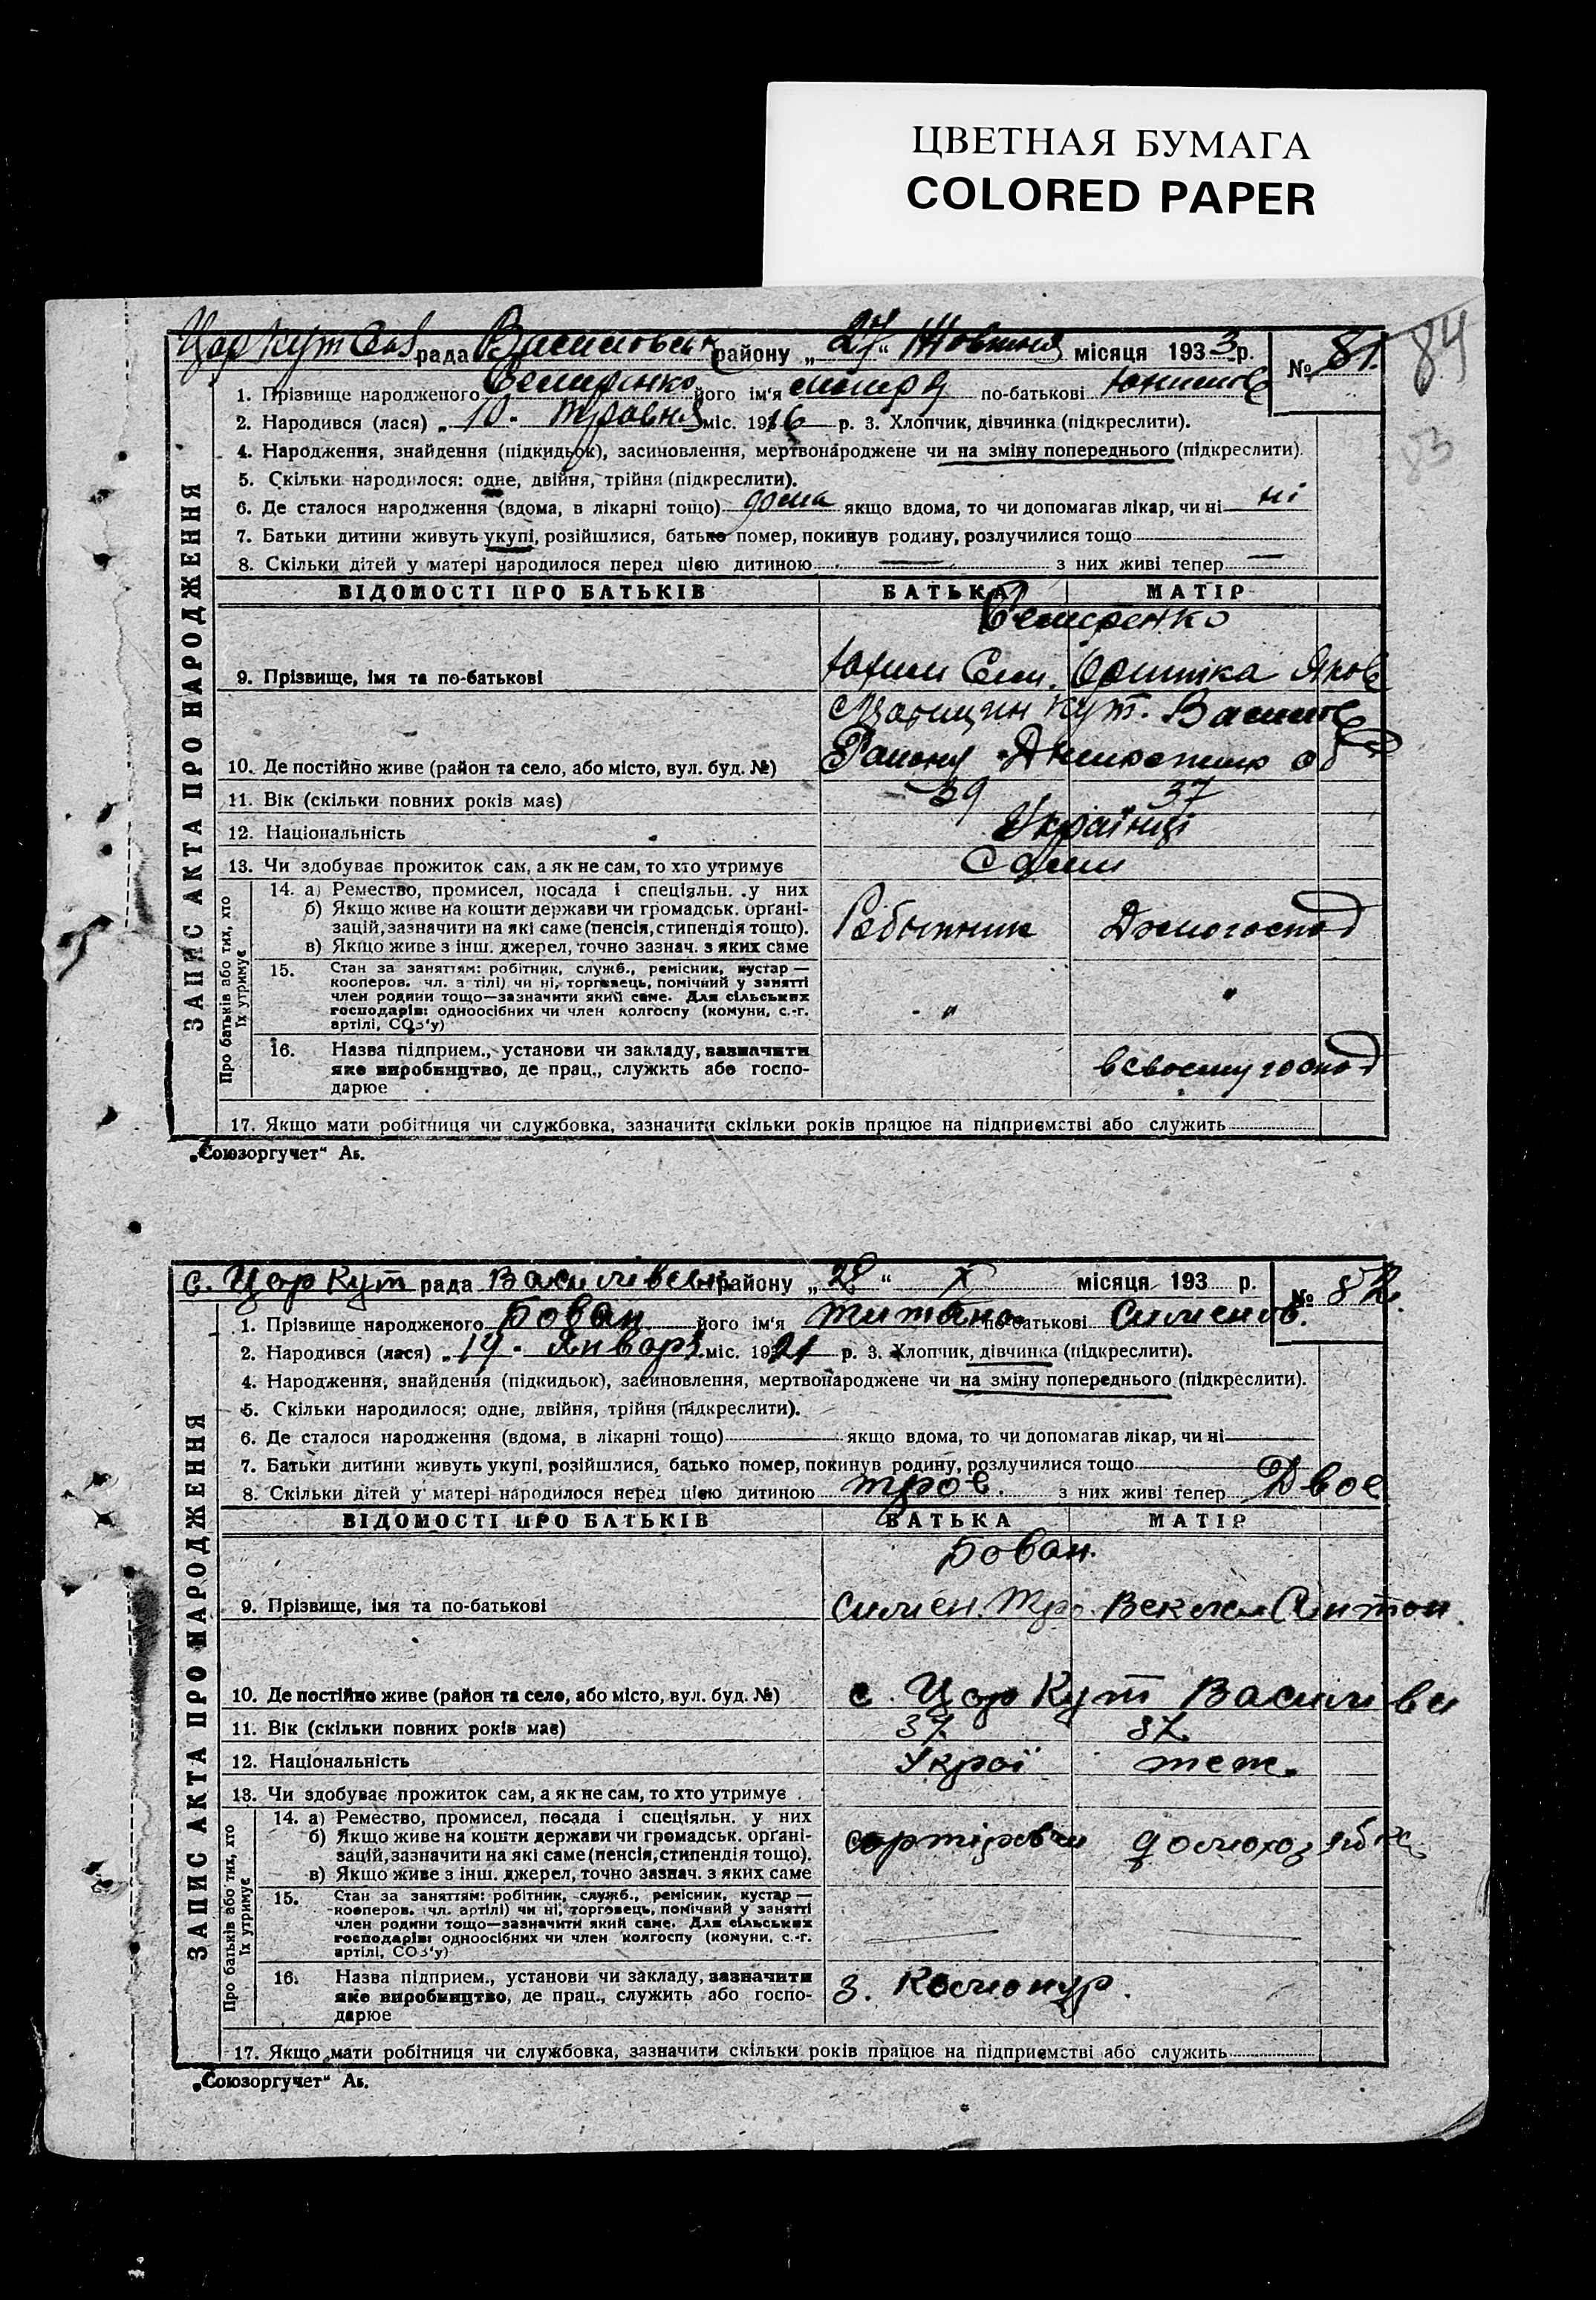 ЦВЕТНАЯ БУМАГА
COLORED PAPER
84
83
Цар Кут рада района „27“ Жовтня місяця 1933 р. № 81.
1. Прізвище народженого його ім'я по-батькові
2. Народився (лася) „10“ травня міс. 1916 р. 3. Хлопчик, дівчинка (підкреслити).
4. Народження, знайдення (підкидьок), засиновлення, мертвонароджене чи на зміну попереднього (підкреслити).
5. Скільки народилося: одне, двійня, трійня (підкреслити).
6. Де сталося народження (вдома, в лікарні тощо) дома якщо вдома, то чи допомагав лікар, чи ні ні
7. Батьки дитини живуть укупі, розійшлися, батько помер, покинув родину, розлучилися тощо
8. Скільки дітей у матері народилося перед цією дитиною — з них живі тепер —
ЗАПИС АКТА ПРО НАРОДЖЕННЯ
ВІДОМОСТІ ПРО БАТЬКІВ БАТЬКА МАТІР
9. Прізвище, імя та по-батькові Яков
Кут.
10. Де постійно живе (район та село, або місто, вул. буд. №) Району
11. Вік (скільки повних років має) 39 37
12. Національність Українці
13. Чи здобуває прожиток сам, а як не сам, то хто утримує Сами
Про батьків або тих, хто їх утримує
14. а) Ремество, промисел, посада і спеціяльн. у них
б) Якщо живе на кошти держави чи громадськ. органі-
зацій, зазначити на які саме (пенсія, стипендія тощо). Робітник Домогоспод
в) Якщо живе з інш. джерел, точно зазнач. з яких саме
15. Стан за заняттям: робітник, служб., ремісник, кустар —
кооперов. чл. артілі) чи ні, торговець, помічний у занятті
член родини тощо—зазначити який саме. Для сільських
господарів: одноосібних чи член колгоспу (комуни, с.-г.
артілі, СОЗ'у) „ „
16. Назва підприєм., установи чи закладу, зазначити
яке виробництво, де прац., служить або госпо- в своему господ
дарює
17. Якщо мати робітниця чи службовка, зазначити скільки років працює на підприємстві або служить
„Союзоргучет“ Аб.
с. Цар Кут рада Василівськ району „28“ X місяця 193 р. № 82.
1. Прізвище народженого Бован його ім'я по-батькові Сименов.
2. Народився (лася) „19“ Января міс. 1921 р. 3. Хлопчик, дівчинка (підкреслити).
4. Народження, знайдення (підкидьок), засиновлення, мертвонароджене чи на зміну попереднього (підкреслити).
5. Скільки народилося; одне, двійня, трійня (підкреслити).
6. Де сталося народження (вдома, в лікарні тощо) — якщо вдома, то чи допомагав лікар, чи ні —
7. Батьки дитини живуть укупі, розійшлися, батько помер, покинув родину, розлучилися тощо —
8. Скільки дітей у матері народилося перед цією дитиною троє. з них живі тепер Двоє
ЗАПИС АКТА ПРО НАРОДЖЕННЯ
ВІДОМОСТІ ПРО БАТЬКІВ БАТЬКА МАТІР
Бован.
9. Прізвище, імя та по-батькові Симен. Антон
10. Де постійно живе (район та село, або місто, вул. буд. №) с. Цар Кут Василівсь
11. Вік (скільки повних років має) 37 37
12. Національність Украї теж.
13. Чи здобуває прожиток сам, а як не сам, то хто утримує
Про батьків або тих, хто їх утримує
14. а) Ремество, промисел, посада і спеціяльн. у них
б) Якщо живе на кошти держави чи громадськ. органі-
зацій, зазначити на які саме (пенсія, стипендія тощо).
в) Якщо живе з інш. джерел, точно зазнач. з яких саме
15. Стан за заняттям: робітник, служб., ремісник, кустар —
кооперов. чл. артілі) чи ні, торговець, помічний у занятті
член родини тощо—зазначити який саме. Для сільських
господарів: одноосібних чи член колгоспу (комуни, с.-г.
артілі, СОЗ'у) — —
16. Назва підприєм., установи чи закладу, зазначити
яке виробництво, де прац., служить або госпо- З.
дарює
17. Якщо мати робітниця чи службовка, зазначити скільки років працює на підприємстві або служить
„Союзоргучет“ Аб.